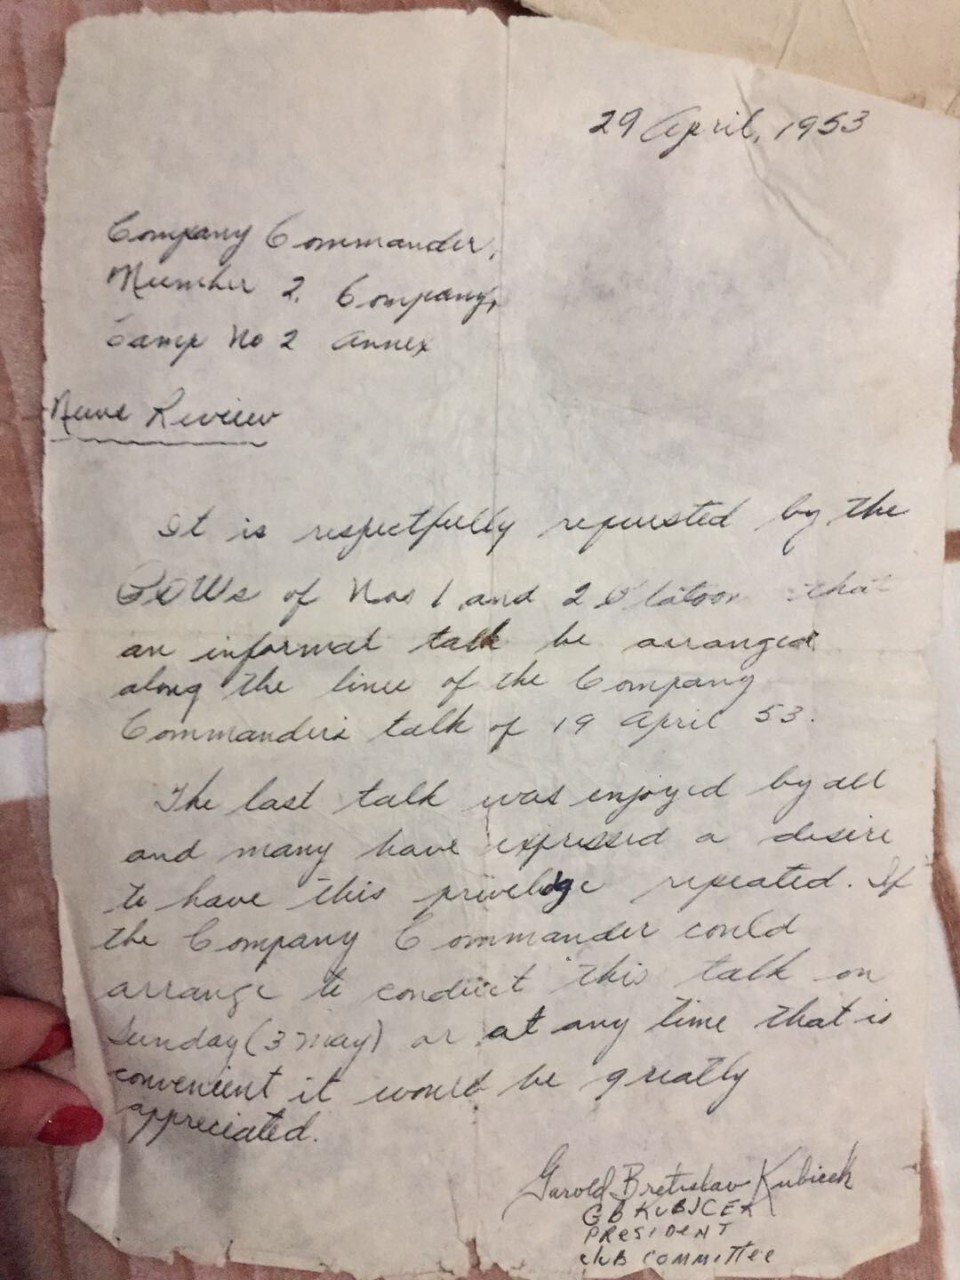 29 April, 1953
Company Commander,
Number 2. Company,
Camp No 2 Annex
News Review
It is respectfully requested by the
POWs of Nos 1 and 2 Platoon that
an informal talk be arranged
along the lines of the Company
Commanders talk of 19 April 53.
The last talk was enjoyed by all
and many have expressed a desire
to have this privelidge repeated. If
the Company Commander could
arrange to conduct this talk on
Sunday (3 May) or at any time that is
convenient it would be greatly
appreciated.
Garold Bretislav Kubicek
GB KUBICEK
PRESIDENT
CLUB COMMITTEE